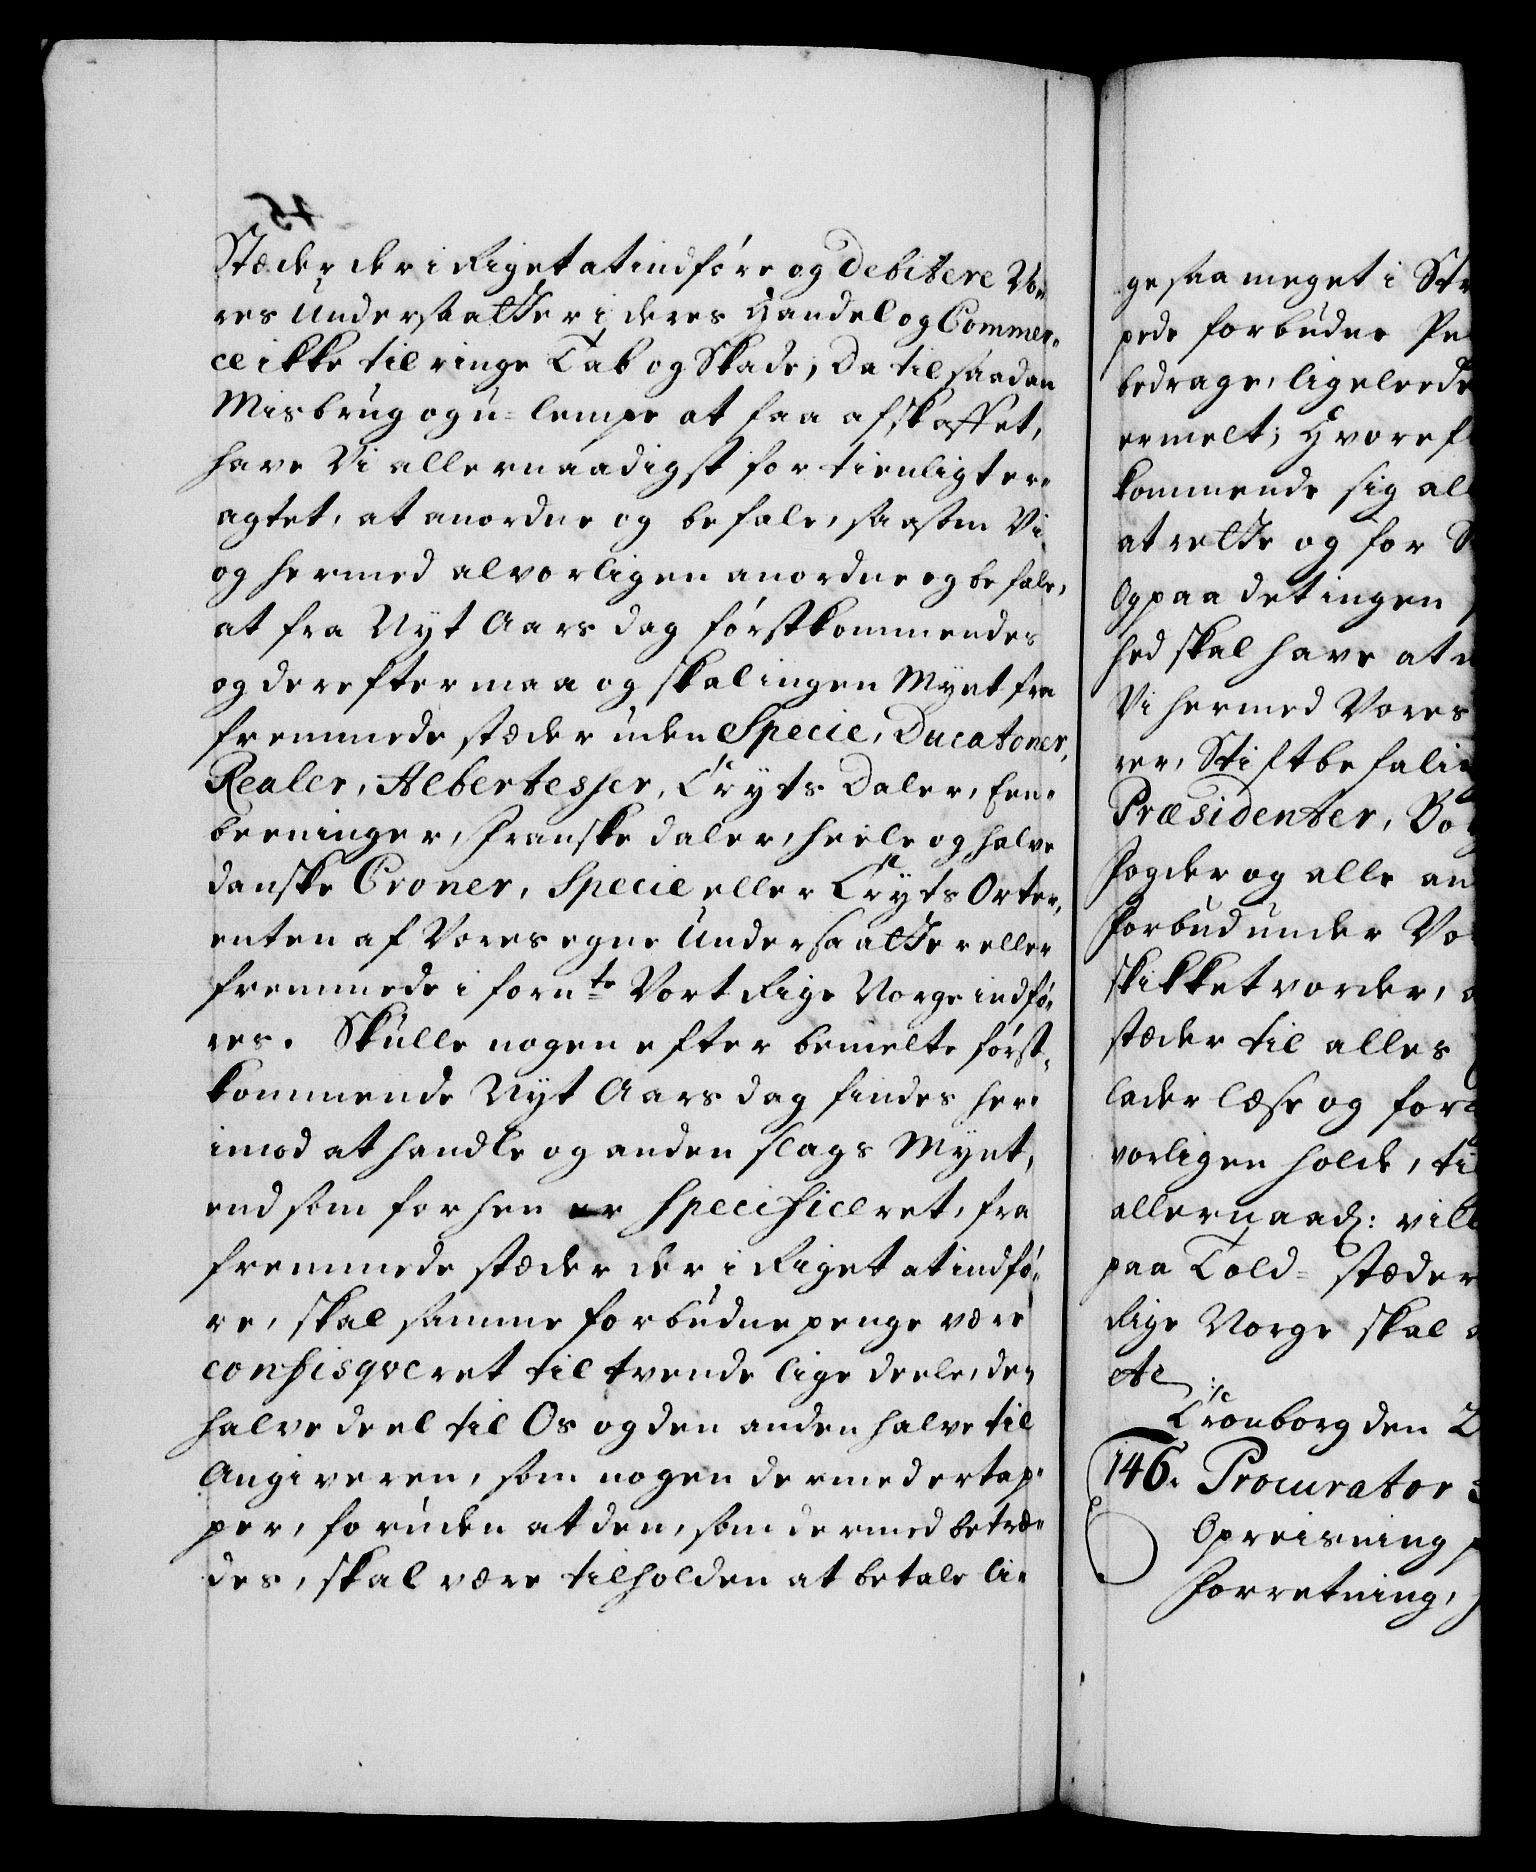 Stæder der i Riget at indføre og debitere Vo-
res Undersaatter i deres Handel og Commer-
ce ikke til ringe Tab og Skade; Da til saadan
Misbrug og u-lempe at faa afskaffet,
have Vi allernaadigst for tienligt er-
agtet, at anordne og befale, saasom Vi
og hermed alvorligen anordne og befale,
at fra Nyt Aars dag førstkommendes
og derefter maa og skal ingen Mynt fra
fremmede stæder uden Specie, Ducatoner,
Realer, Albertesser, Cryts Daler, Een-
beeninger, franske daler, heele og halve
danske Croner, Specie eller Cryts Orter,
enten af Vores egne Undersaatter eller
fremmede i fornte Vort Rige Norge indfø-
res. Skulle nogen efter bemelte først-
kommende Nyt Aars dag findes her-
imod at handle og anden slags Mynt,
end som forhen er specificeret, fra
fremmede stæder der i Riget at indfø-
re, skal samme forbudne penge være
confisqveret til tvende lige deele, den
halve deel til Os og den anden halve til
Angiveren, som nogen dermed ertap-
per, foruden at den, som dermed betræ-
des, skal være tilholden at betale li-
ge saa meget i
pede forbudne
bedrage, ligeleede
ermelt;
kommende sig
at rette og for
Og paa det ingen
hed skal have at
Vi hermed Vores
rer,
Præsidenter,
fogder og alle
forbud under
skikket vorder,
stæder til alles
lader læse og
vorligen holde,
allernaad:
paa Told-stæder
Rige Norge skal
etc.
Cronborg den
146. Procurator
Opreisning
forretning,